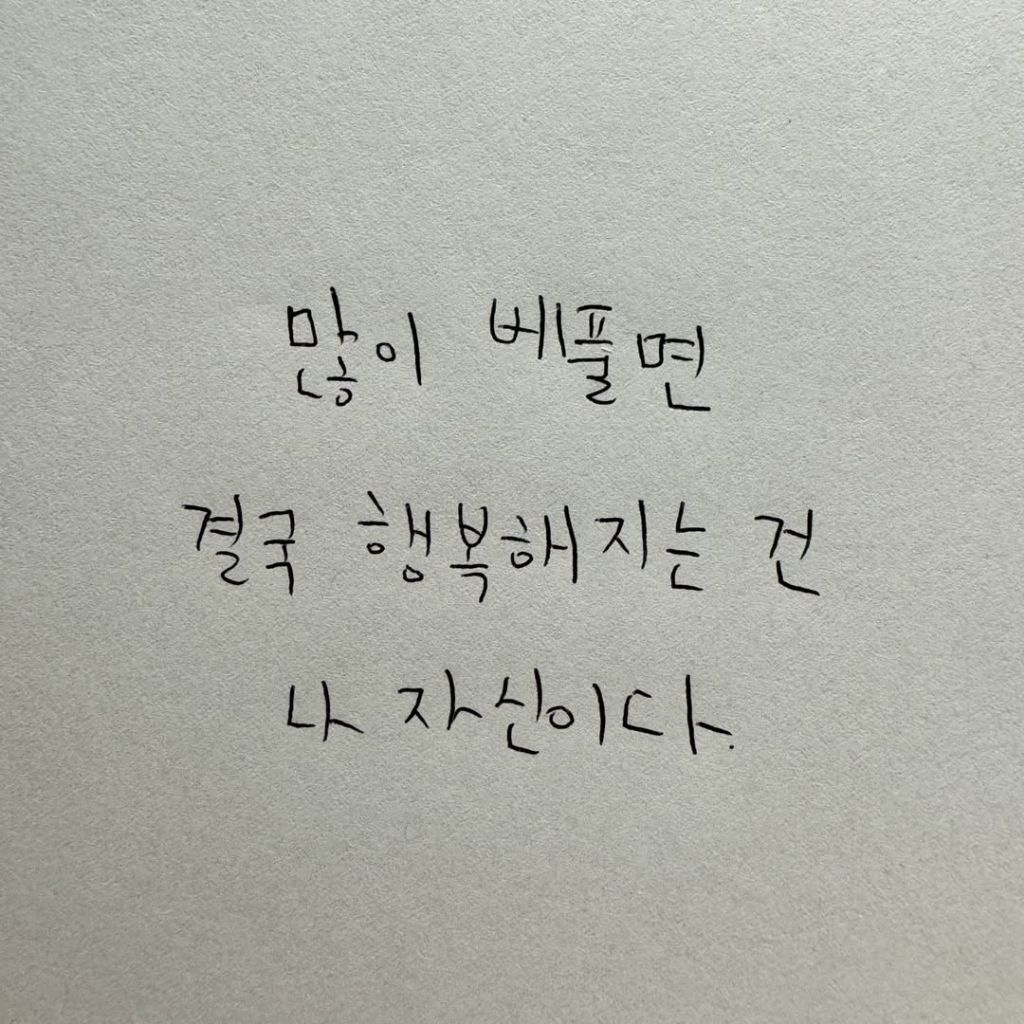 많이 베플면
결국 행복해지는 건
나 자신이다.